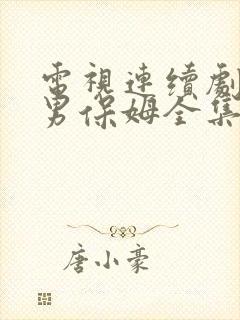 電視連續劇
男保姆全集
唐小豪